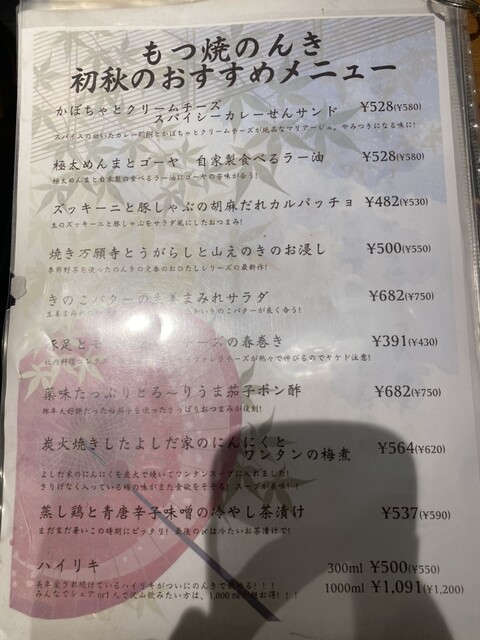 もつ焼のんき
初秋のおすすめメニュー
かぼちゃとクリームチーズ
スパイシーカレーせんサンド ¥528(¥580)
スパイスの効いたカレー煎餅とかぼちゃとクリームチーズが絶品なマリアージュ。やみつきになる味に!
極太めんまとゴーヤ 自家製食べるラー油 ¥528(¥580)
極太めんまと自家製の食べるラー油にゴーヤの苦味が合う!
ズッキーニと豚しゃぶの胡麻だれカルパッチョ ¥482(¥530)
生のズッキーニと豚しゃぶをサラダ風にしたおつまみ!
焼き万願寺とうがらしと山えのきのお浸し ¥500(¥550)
季節野菜を使ったのんきの定番のおひたしシリーズの最新作!
きのこバターの生姜まみれサラダ ¥682(¥750)
生姜まみれ きのこバターが良く合う!
豚足と チーズの春巻き ¥391(¥430)
チーズが熱々で伸びるのでヤケド注意!
薬味たっぷりとろ〜りうま茄子ポン酢 ¥682(¥750)
昨年大好評だった を使ったさっぱりおつまみが復刻!
炭火焼きしたよしだ家のにんにくと
ワンタンの梅煮 ¥564(¥620)
よしだ家のにんにくを炭火で焼いてワンタンスープに入れました!
さりげなく入っている梅の味がまた食欲をそそる!スープが美味い!
蒸し鶏と青唐辛子味噌の冷やし茶漬け ¥537(¥590)
まだまだ暑いこの時期にピッタリ! 最後の〆は冷たいお茶漬けで!
ハイリキ 300ml ¥500(¥550)
長年愛され続けているハイリキがついにのんきで飲める!!!
1000ml ¥1,091(¥1,200)
みんなでシェア or1人で沢山飲みたい方は、1,000 お得!!!